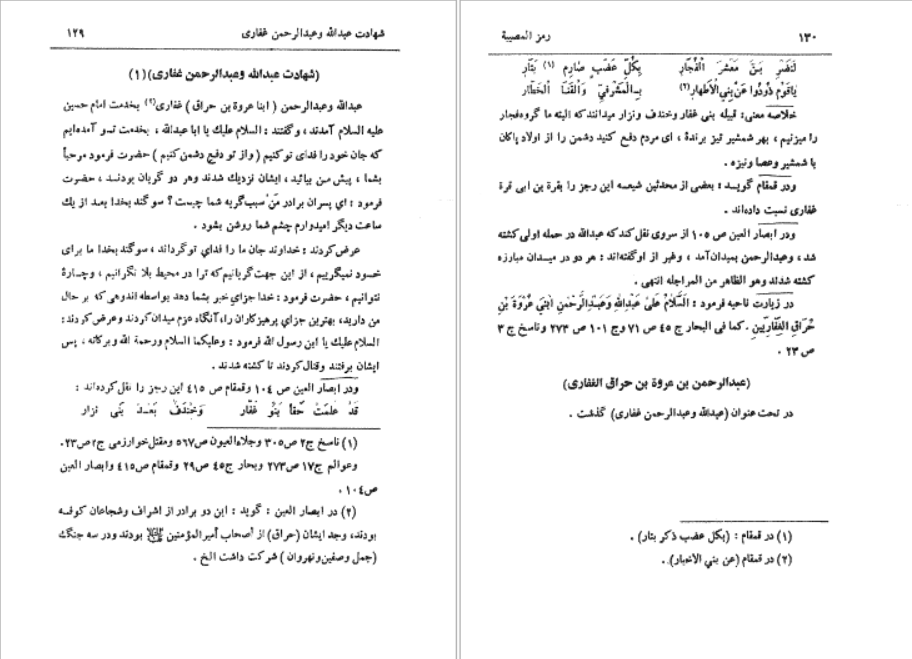 شهادت عبدالله وعبدالرحمن غفاری ۱۲۹
(شهادت عبدالله وعبدالرحمن غفاری)(۱)
عبدالله وعبدالرحمن ( ابنا عروة بن حراق ) غفاری(۲) بخدمت امام حسین
علیه السلام آمدند ، وگفتند : السلام علیك یا ابا عبدالله ، بخدمت تـو آمده‌ایم
که جان خودرا فدای تو کنیم ( واز تو دفع دشمن کنیم ) حضرت فرمود مرحباً
بشما ، پیش من بیائید ، ایشان نزدیك شدند وهر دو گریان بودنـد ، حضرت
فرمود : ای پسران برادر من سبب گریه شما چیست ؟ سوگند بخدا بعد از یك
ساعت دیگر امیدوارم چشم شما روشن بشود .
عرض کردند : خداوند جان ما را فدای تو گرداند ، سوگند بخدا ما برای
خـود نمیگرییم ، از این جهت گریانیم که ترا در محیط بلا نگرانیم ، و چـارهٔ
نتوانیم ، حضرت فرمود : خدا جزای خیر بشما دهد بواسطه اندوهی که بر حال
من دارید، بهترین جزای پرهیزکاران را، آنگاه عزم میدان کردند وعرض کردند:
السلام علیك یا ابن رسول الله فرمود : وعلیکما السلام ورحمة الله وبرکاته ، پس
ایشان برفتند وقتال کردند تا کشته شدند .
ودر ابصار العین ص ۱۰٤ وقمقام ص ٤۱٥ این رجز را نقل کرده‌اند :
قَدْ عَلِمَتْ حَقاً بَنُو غَفّار وَخِنْدَفٌ بَعْـدَ بَنی نزار
(۱) ناسخ ج۲ ص۳۰٥ وجلاءالعیون ص٥٦۷ ومقتل خوارزمی ج۲ ص۲۳.
وعوالم ج۱۷ ص۲۷۳ وبحار ج٤٥ ص۲۹ وقمقام ص٤۱٥ وابصار العین
ص۱۰٤ .
(۲) در ابصار العین : گوید : این دو برادر از اشراف وشجاعان کوفـه
بودند، وجد ایشان (حراق) از أصحاب أمیرالمؤمنین بودند ودر سه جنگ
(جمل وصفین ونهروان ) شرکت داشت الخ .
۱۳۰ رمز المصیبة
لَنَضْرِ بَـنَّ مَعْشَرَ الْفُجّارِ بِكُلِّ عَضْبٍ صٰارِمٍ (۱) بَتّارِ
یٰاقَوْمِ ذُودُوا عَنْ بَنِی الْأَطْهارِ(۲) بِـالْمَشْرَفِیِّ وَالْقَنَـا الْخَطّار
خلاصه معنی: قبیله بنی غفار وخندف ونزار میدانند که البته ما گروه فجار
را میزنیم ، بهر شمشیر تیز برندهٔ ، ای مردم دفع کنید دشمن را از اولاد پاکان
با شمشیر وعصا ونیزه .
ودر قمقام گویـد : بعضی از محدثین شیعـه این رجز را بقرة بن ابی قرة
غفاری نسبت داده‌اند .
ودر ابصار العین ص ۱۰٥ از سروی نقل کند که عبدالله در حمله اولی کشته
شد ، وعبدالرحمن بمیدان آمد ، وغیر از او گفته‌اند : هر دو در میـدان مبارزه
کشته شدند وهو الظاهر من المراجعه انتهی .
در زیارت ناحیه فرمود : السَّلٰامُ عَلیٰ عَبْدِاللهِ وَعَبْدِالرَّحْمٰنِ ابْنَیْ عُرْوَةَ بْنِ
حُرٰاقِ الْغِفٰارِیَّیْنِ .کما فی البحار ج ٤٥ ص ۷۱ وج ۱۰۱ ص ۲۷۳ وناسخ ج ۳
ص ۲۳ .
(عبدالرحمن بن عروة بن حراق الغفاری)
در تحت عنوان (عبدالله وعبدالرحمن غفاری) گذشت .
(۱) در قمقام : (بکل عضب ذکر بتار) .
(۲) در قمقام (عن بني الاخیار) .